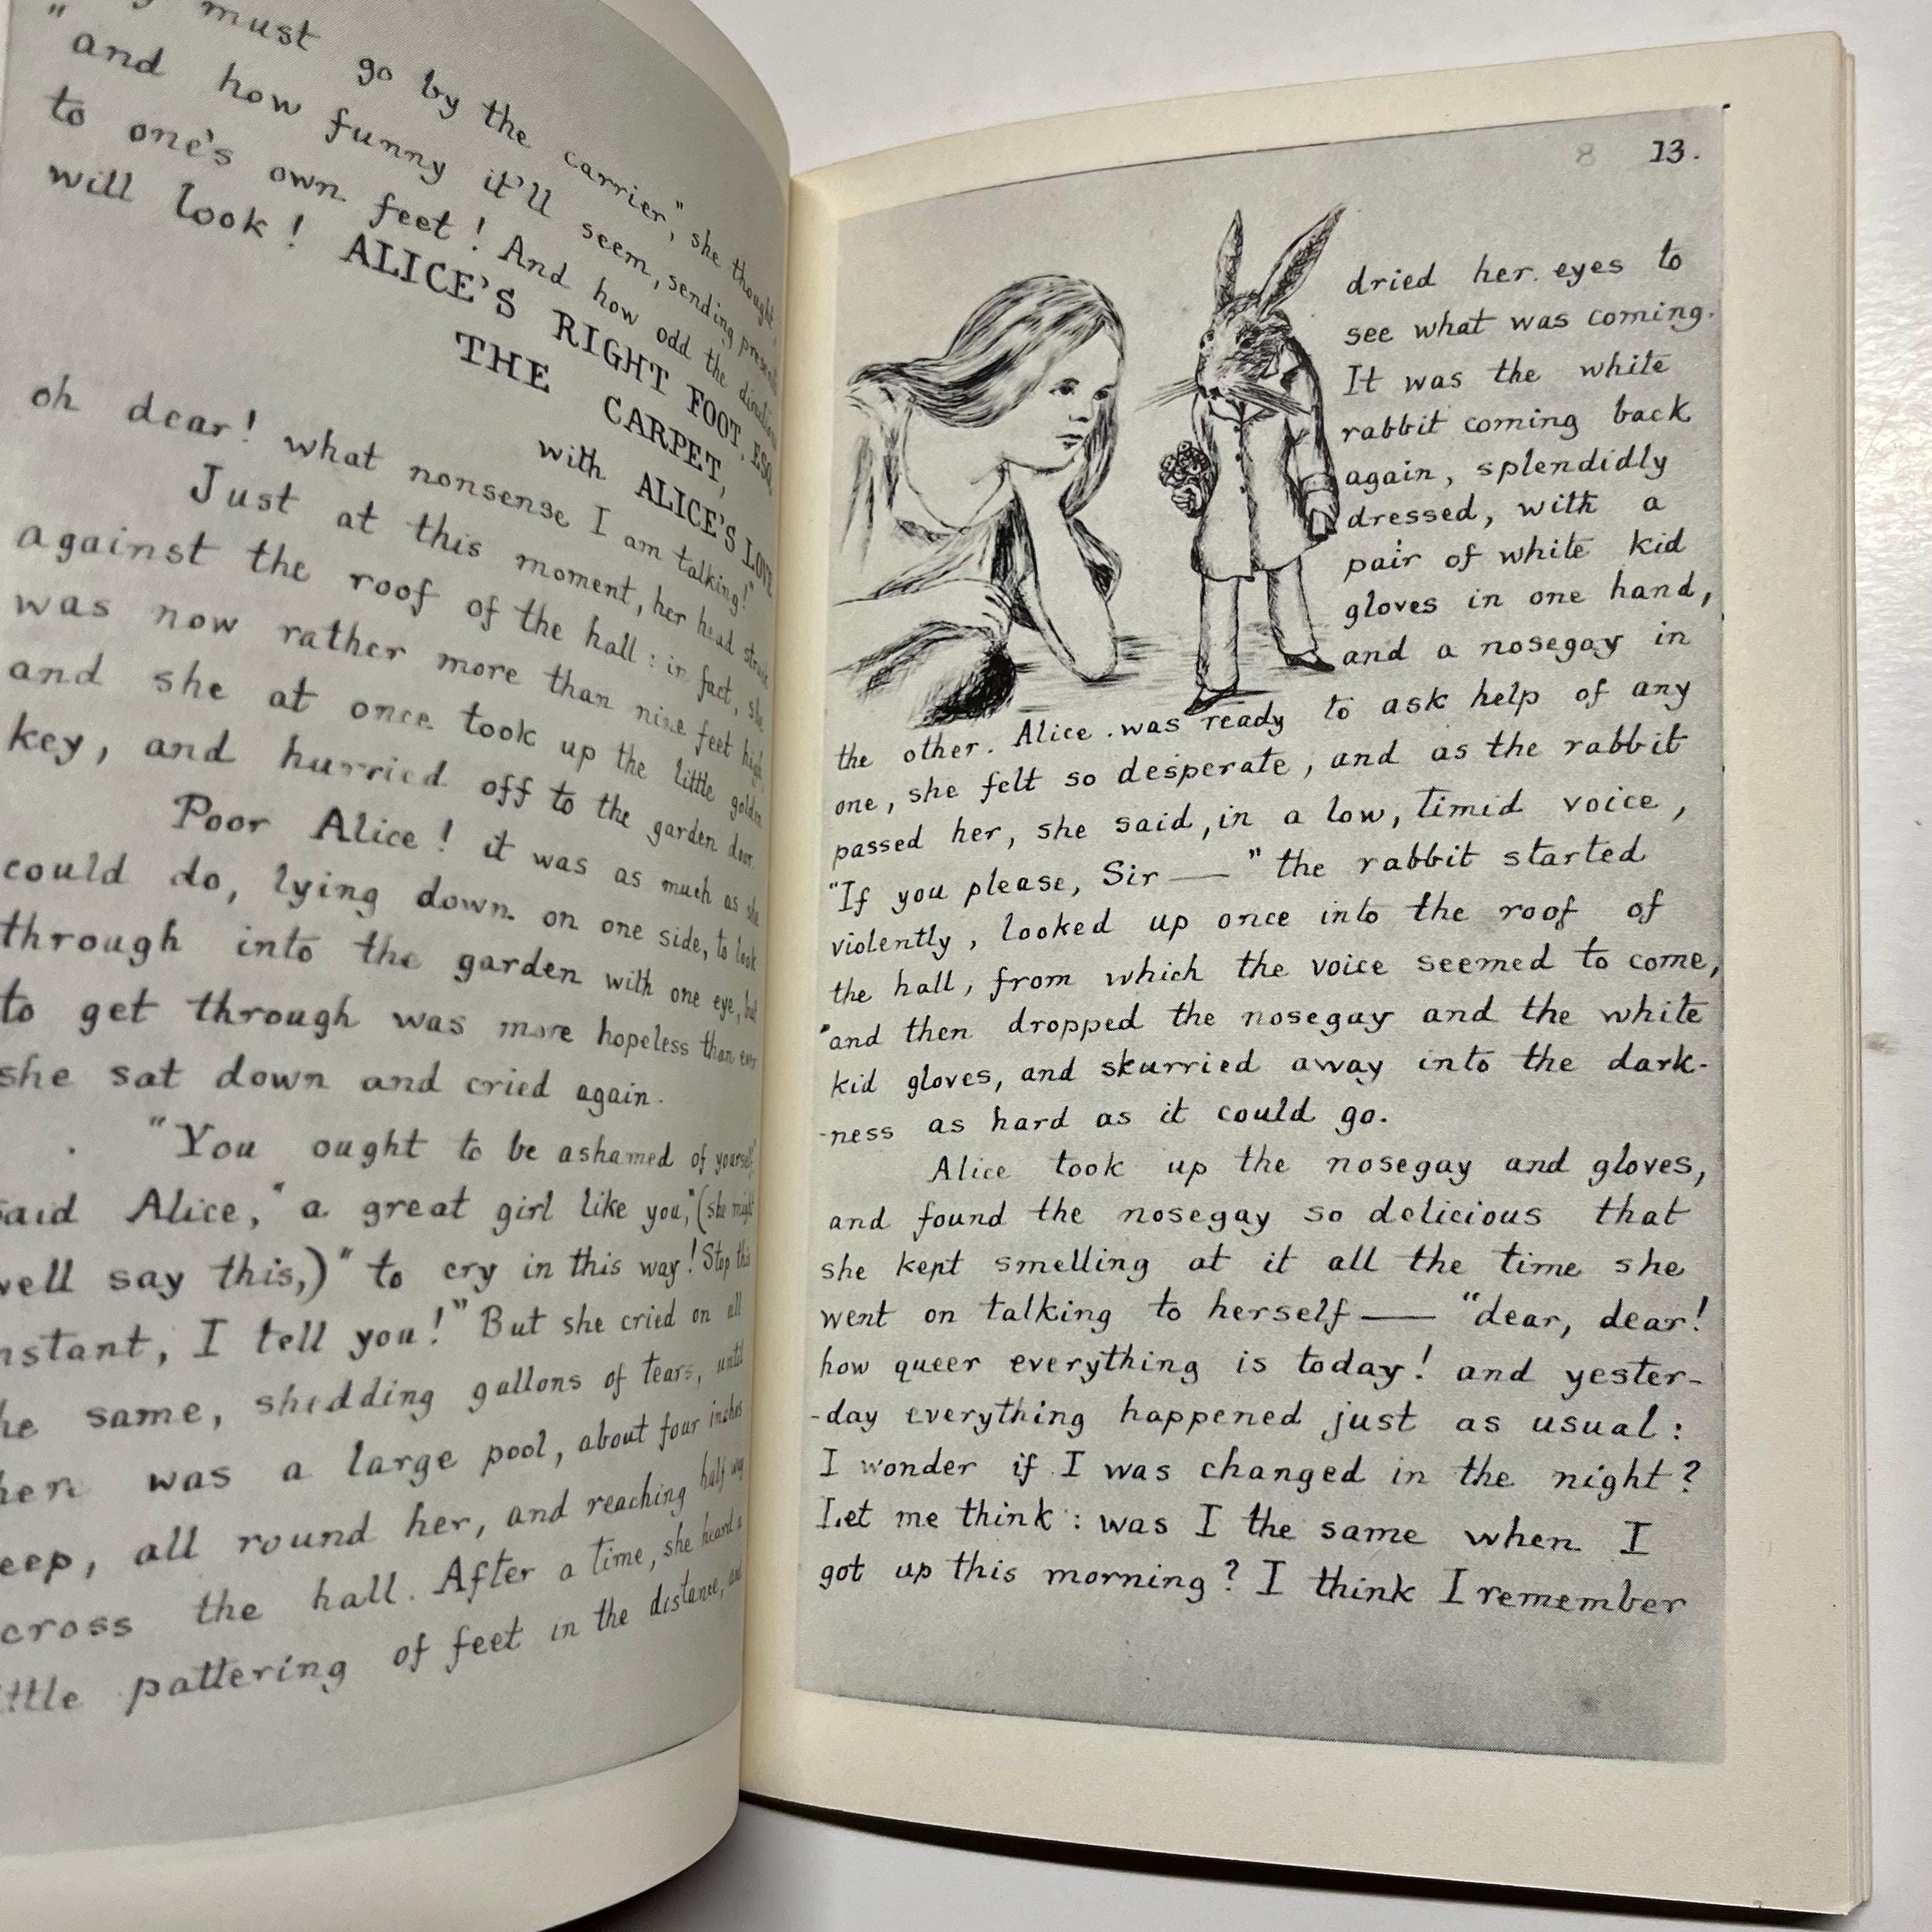 must go by the carrier," she thought,
"and how funny it'll seem, sending presents
to one's own feet! And how odd the directions
will look! ALICE'S RIGHT FOOT, ESQ
THE CARPET,
with ALICE'S LOVE
oh dear! what nonsense I am talking!"
Just at this moment, her head struck
against the roof of the hall: in fact, she
was now rather more than nine feet high,
and she at once took up the little golden
key, and hurried off to the garden door.
Poor Alice! it was as much as she
could do, lying down on one side, to look
through into the garden with one eye, but
to get through was more hopeless than ever
she sat down and cried again.
"You ought to be ashamed of yourself,"
said Alice, "a great girl like you," (she might
well say this,) "to cry in this way! Stop this
instant, I tell you!" But she cried on all
the same, shedding gallons of tears, until
there was a large pool, about four inches
deep, all round her, and reaching half way
across the hall. After a time, she heard a
little pattering of feet in the distance, and
8 13.
dried her eyes to
see what was coming.
It was the white
rabbit coming back
again, splendidly
dressed, with a
pair of white kid
gloves in one hand,
and a nosegay in
the other. Alice was ready to ask help of any
one, she felt so desperate, and as the rabbit
passed her, she said, in a low, timid voice,
"If you please, Sir—" the rabbit started
violently, looked up once into the roof of
the hall, from which the voice seemed to come,
and then dropped the nosegay and the white
kid gloves, and skurried away into the dark-
-ness as hard as it could go.
Alice took up the nosegay and gloves,
and found the nosegay so delicious that
she kept smelling at it all the time she
went on talking to herself— "dear, dear!
how queer everything is today! and yester-
-day everything happened just as usual:
I wonder if I was changed in the night?
Let me think: was I the same when I
got up this morning? I think I remember